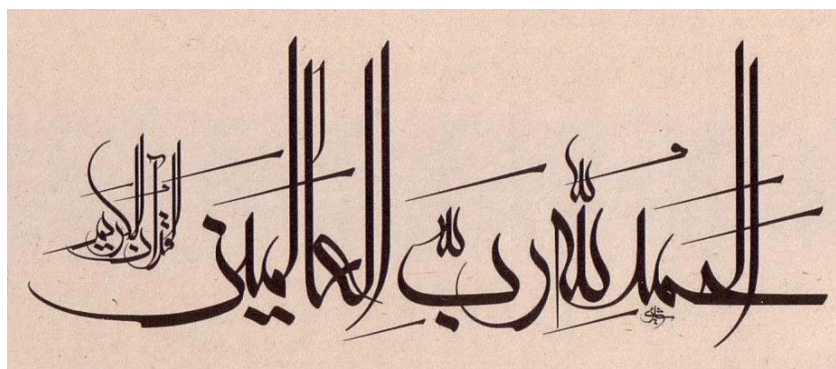 الحمدُ للّٰه ربّ العالمین
القرآن الکریم